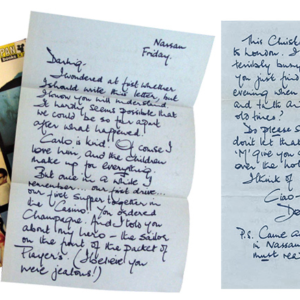 PAN
Nassau
Friday.
Darling,
I wondered at first whether
I should write this letter, but
I know you will understand.
It hardly seems possible that
we could be so far apart
after what happened.
Carlo is kind. Of course I
love him, and the children
make up for everything.
But once in a while I
remember... our first drive...
our first supper together in
the Casino. You ordered
Champagne. And I told you
about my hero – the sailor
on the front of the packet of
Player's. (I believe you
were jealous!)
This Christ
to London. I
terribly busy
you just find
evening when
and talk an
old times?
Do please
don't let that
'M' give you
over the ho
I think of
Ciao –
P.S. Came a
in Nassau
must rea